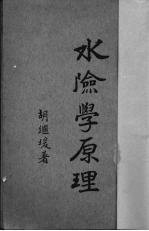 水險學原理
胡繼瑗著